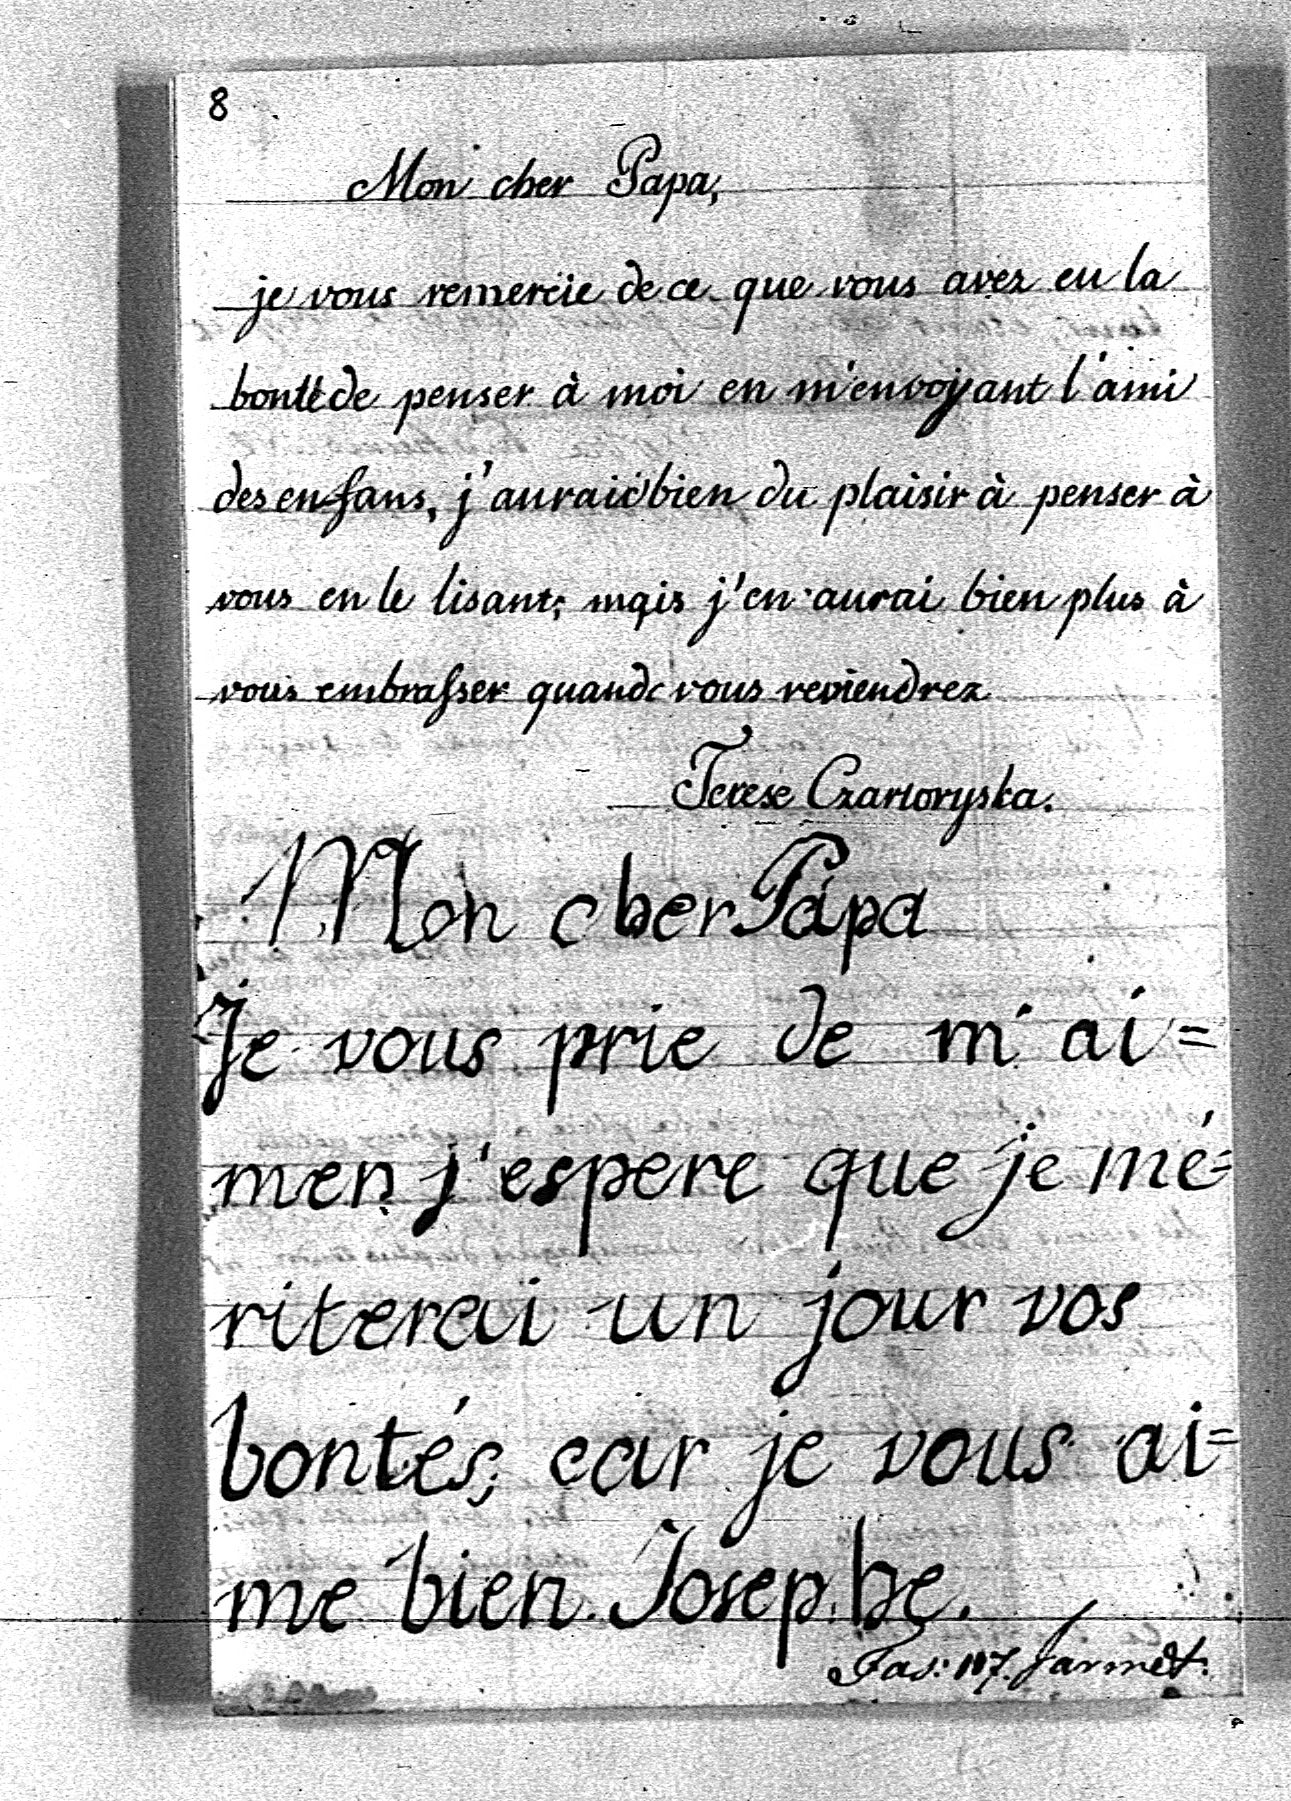 8
Mon cher Papa,
je vous remercie de ce que vous avez eu la
bonté de penser à moi en m'envoyant l'ami
des enfans, j'aurais bien du plaisir à penser à
vous en le lisant; mais j'en aurai bien plus à
vous embrasser quand vous reviendrez
Terese Czartoryska.
Mon cher Papa
Je vous prie de m'ai=
mer j'espere que je mé=
riterai un jour vos
bontés, car je vous ai=
me bien. Josephe.
Fas: 107.